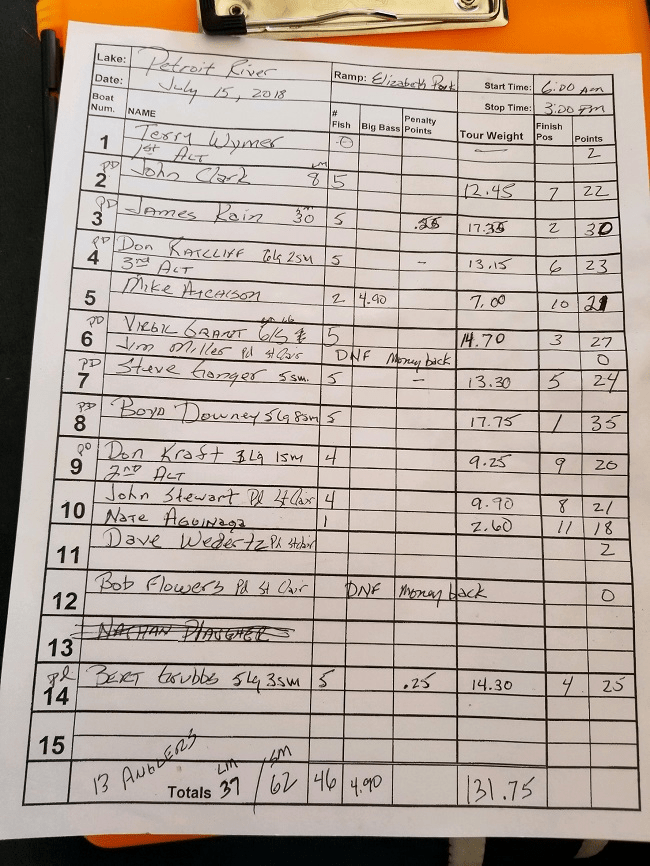 Lake: Detroit River Ramp: Elizabeth Park Start Time: 6:00 Am
Date: July 15, 2018 Stop Time: 3:00 Pm
Boat Num. NAME # Fish Big Bass Penalty Points Tour Weight Finish Pos Points
1 Terry Wymer 0 — 2
1st ALT
PD 2 John Clark 8 LM 5 12.45 7 22
PD 3 James Rain 30 5 .25 17.35 2 30
PD 4 Don RATCLIFF 2sm 5 - 13.15 6 23
3rd ALT
5 Mike 2 4.90 7.00 10 21
PD 6 VIRGIL GRANT 5 14.70 3 27
Jim Miller Pd St Clair DNF Money back 0
PD 7 Steve Gonger 5sm. 5 - 13.30 5 24
PD 8 Boyd Downey 5Lg 8sm 5 17.75 1 35
PD 9 Don Kraft 3Lg 1sm 4 9.25 9 20
2nd ALT
10 John Stewart Pd St Clair 4 9.90 8 21
Nate Aguinaga 1 2.60 11 18
11 Dave Wedertz Pd St Clair 2
12 Bob Flowers Pd St Clair DNF Money back 0
13
pd 14 BERT Grubbs 5Lg 3sm 5 .25 14.30 4 25
15
13 ANGLERS Totals LM 37 / SM 62 46 4.90 131.75